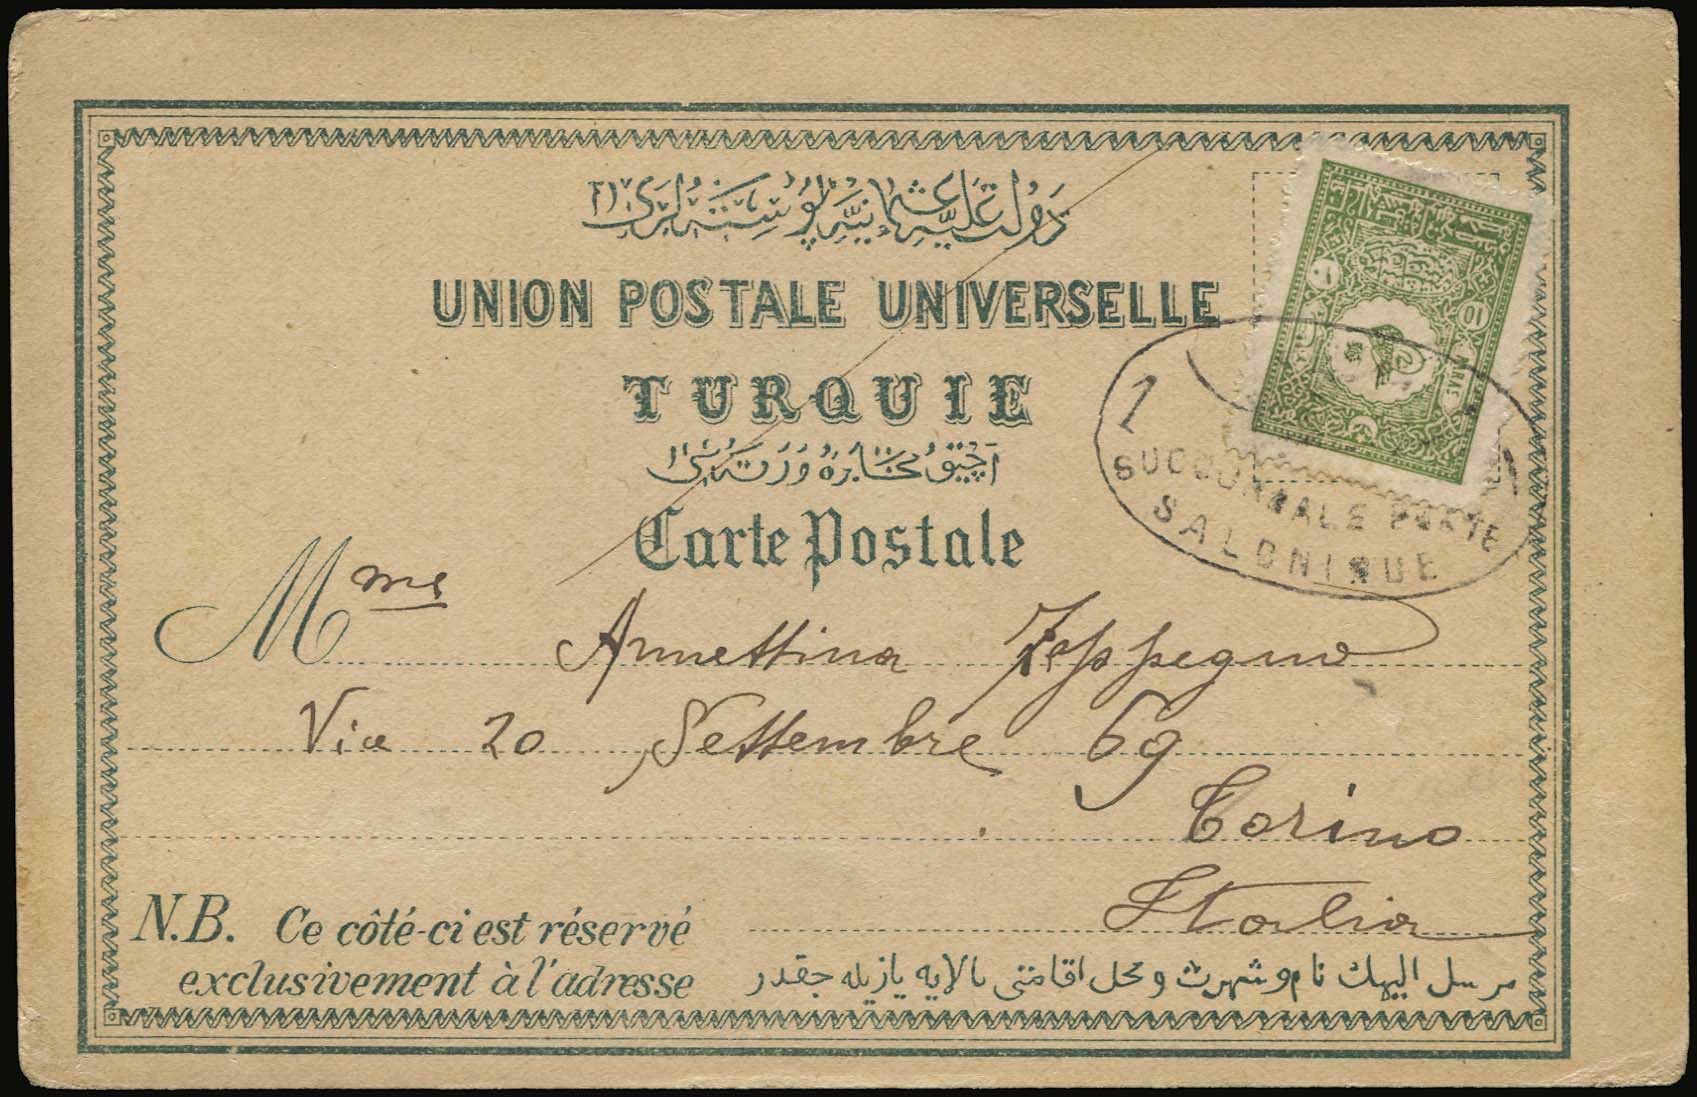 دولت علیه عثمانیه پوسته لری
UNION POSTALE UNIVERSELLE
TURQUIE
آچیق مخابره ورقه سی
Carte Postale
10 PARAS
1
SUCCURSALE POSTE
SALONIQUE
Mme Annettina Zoppegno
Via 20 Settembre 69
Torino
Italia
N.B. Ce côté-ci est réservé
exclusivement à l'adresse
مرسل الیهك نام و شهرت و محل اقامتی بالایه یازیله جقدر